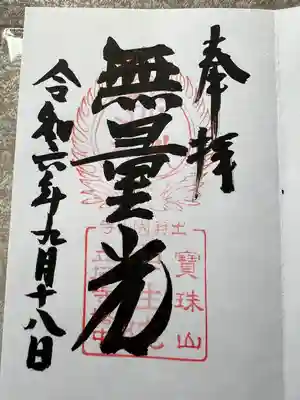 奉拝
無量光
令和六年九月十八日
寶珠山